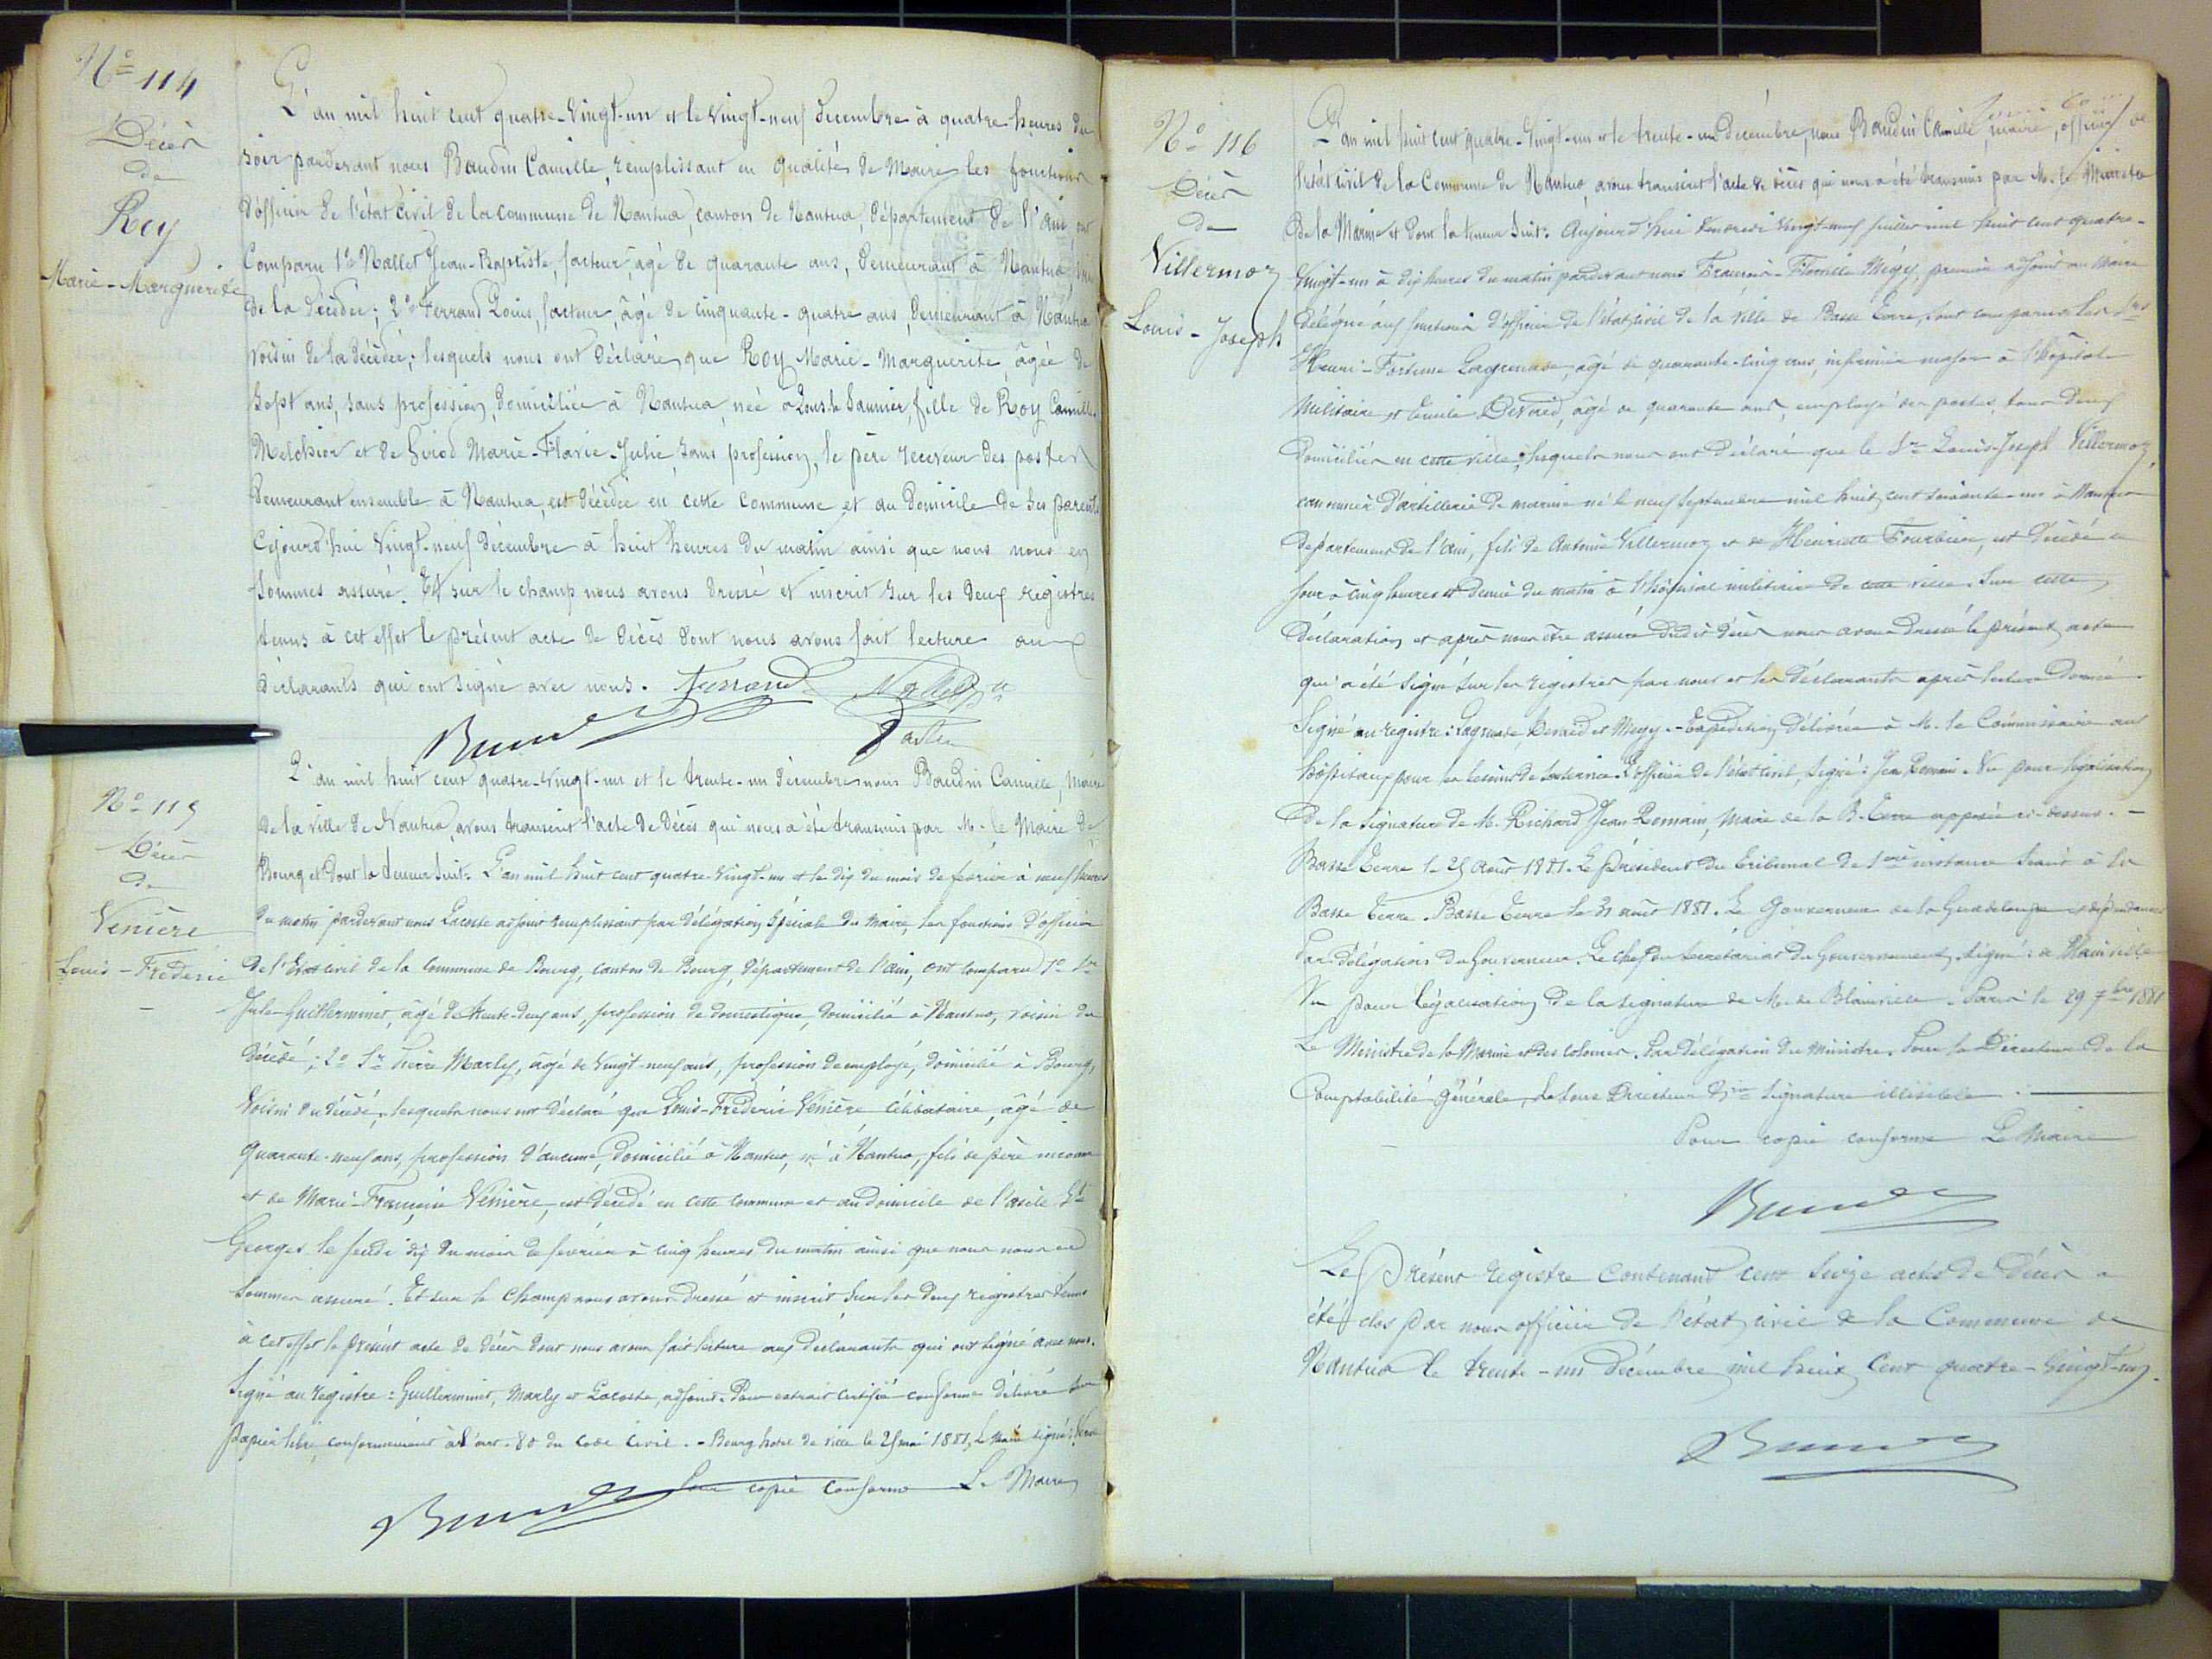 No 114
Décès
de
Roy
Marie-Marguerite
L'an mil huit cent quatre-vingt-un et le vingt-neuf décembre à quatre heures du
soir pardevant nous Baudin Camille, remplissant en qualité de Maire les fonctions
d'officier de l'état civil de la commune de Nantua, canton de Nantua, département de l'Ain, ont
Comparu 1o Nallet Jean-Baptiste, facteur, âgé de quarante ans, demeurant à Nantua,
de la décédée; 2o Ferrand Louis, facteur, âgé de cinquante-quatre ans, demeurant à Nantua
voisin de la décédée; lesquels nous ont déclaré que Roy Marie-Marguerite, âgée de
sept ans, sans profession, domiciliée à Nantua, née à Lons-le Saunier, fille de Roy Camille
Melchior et de Girod Marie-Flavie-Julie, sans profession, le père receveur des postes
demeurant ensemble à Nantua, est décédée en cette commune et au domicile de ses parents
Cejourd'hui vingt-neuf décembre à huit heures du matin ainsi que nous nous en
sommes assuré. Et sur le champ nous avons dressé et inscrit sur les deux registres
tenus à cet effet le présent acte de décès dont nous avons fait lecture aux
déclarants qui ont signé avec nous. Ferrand Nallet
No 115
Décès
de
Venière
Louis-Frédéric
L'an mil huit cent quatre-vingt-un et le trente-un décembre nous Baudin Camille, Maire
de la ville de Nantua, avons transcrit l'acte de décès qui nous a été transmis par M. le Maire de
Bourg et dont la teneur suit: L'an mil huit cent quatre-vingt-un et le dix du mois de février à neuf heures
du matin pardevant nous Lacoste adjoint remplissant par délégation spéciale du maire, les fonctions d'officier
de l'Etat civil de la Commune de Bourg, canton de Bourg, département de l'Ain, ont comparu 1o Sr
Jules Guillerminet, âgé de trente-deux ans, profession de domestique, domicilié à Nantua, voisin du
décédé; 2o Sr Pierre Marly, âgé de vingt-neuf ans, profession d'employé, domicilié à Bourg,
voisin du décédé, lesquels nous ont déclaré que Louis-Frédéric Venière, célibataire, âgé de
quarante-neuf ans, profession d'aucune, domicilié à Nantua, né à Nantua, fils de père inconnu
et de Marie-Françoise Venière, est décédé en cette commune et au domicile de l'asile St
Georges le jeudi dix du mois de février à cinq heures du matin ainsi que nous nous en
sommes assuré. Et sur le champ nous avons dressé et inscrit sur les deux registres tenus
à cet effet le présent acte de décès dont nous avons fait lecture aux déclarants qui ont signé avec nous.
Signé au registre: Guillerminet, Marly et Lacoste, adjoint. Pour extrait certifié conforme délivré sur
papier libre conformément à l'art. 80 du Code Civil. - Bourg hôtel de ville le 25 mai 1881, Le Maire signé:
Pour copie conforme Le Maire
No 116
Décès
de
Villermoz
Louis-Joseph
L'an mil huit cent quatre-vingt-un et le trente-un décembre, nous Baudin Camille, maire, officier de
l'état civil de la Commune de Nantua, avons transcrit l'acte de décès qui nous a été transmis par M. le Ministre
de la Marine et dont la teneur suit: Aujourd'hui vendredi vingt-neuf juillet mil huit cent quatre-
vingt-un à dix heures du matin pardevant nous François-Fleurille Mégy, premier adjoint au Maire
délégué aux fonctions d'officier de l'état civil de la ville de Basse Terre, sont comparus les Srs
Henri-Fortune Lagrenade, âgé de quarante-cinq ans, infirmier major à l'hôpital
Militaire et Emile Devried, âgé de quarante ans, employé des postes, tous deux
domiciliés en cette ville; lesquels nous ont déclaré que le Sr Louis-Joseph Villermoz,
canonnier d'artillerie de marine né le neuf septembre mil huit cent soixante-un à Nantua
département de l'Ain, fils de Antoine Villermoz et de Henriette Fourbier, est décédé ce
jour à cinq heures et demie du matin à l'hôpital militaire de cette ville. Sur cette
déclaration et après nous être assuré dudit décès nous avons dressé le présent acte
qui a été signé sur les registres par nous et les déclarants après lecture donnée
Signé au registre: Lagrenade, Devried et Mégy. - Expédition délivrée à M. le Commissaire aux
hôpitaux pour les besoins du service. L'officier de l'état civil, signé: Jean Romain. Vu pour légalisation
de la signature de M. Richard Jean Romain, Maire de la B. Terre apposée ci-dessus. -
Basse Terre le 25 août 1881. Le Président du tribunal de 1ère instance séant à la
Basse Terre. Basse Terre le 31 août 1881. Le Gouverneur de la Guadeloupe et dépendances
Par délégation du Gouverneur. Le chef du Secrétariat du Gouvernement, signé: de Blainville
Vu pour légalisation de la signature de M. de Blainville. Paris le 29 7bre 1881
Le Ministre de la Marine et des colonies. Par délégation du Ministre. Pour le Directeur de la
Comptabilité Générale, Le Sous Directeur signature illisible.
Pour copie conforme Le Maire
Le Présent registre contenant cent seize actes de décès a
été clos par nous officier de l'état civil de la Commune de
Nantua le trente-un décembre mil huit cent quatre-vingt-un.